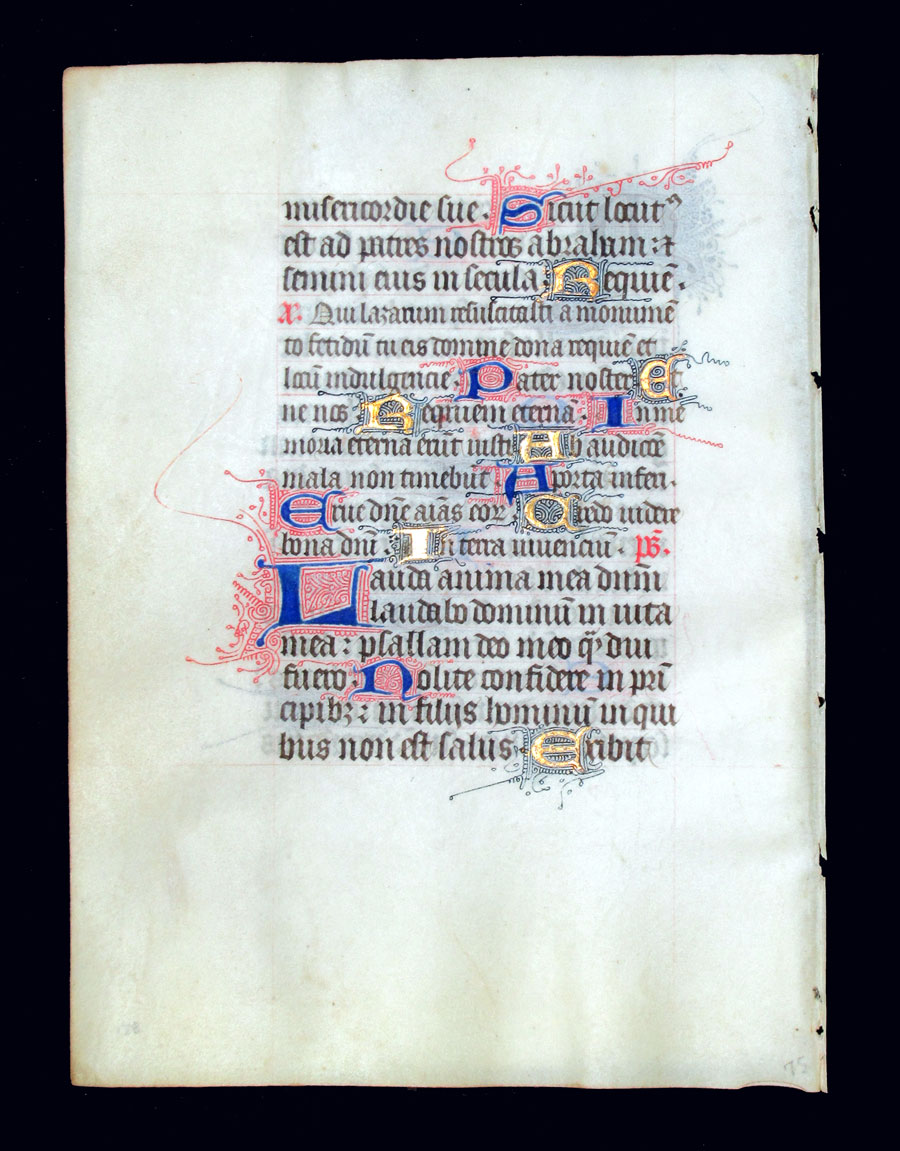 misericordie sue. Sicut locut⁹
est ad patres nostros abraham: ⁊
semini eius in secula. Requiē.
Aᷓ. Qui lazarum resuscitasti a monumē
to fetidū tu eis domine dona requiē et
locū indulgencie. Pater noster. Et
ne nos. Requiem eterna. In me
moria eterna erūt iusti. Ab audicōe
mala non timebūt. A porta inferi.
Erue dn̄e aīas eoꝝ. Credo videre
bona dn̄i. In terra viuenciū. ps̄.
Lauda anima mea dūm
laudabo dominū in vita
mea: psallam deo meo qᷓdiu
fuero. Nolite confidere in prī
cipibꝫ: in filijs hominū in qui
bus non est salus. Exibit
75